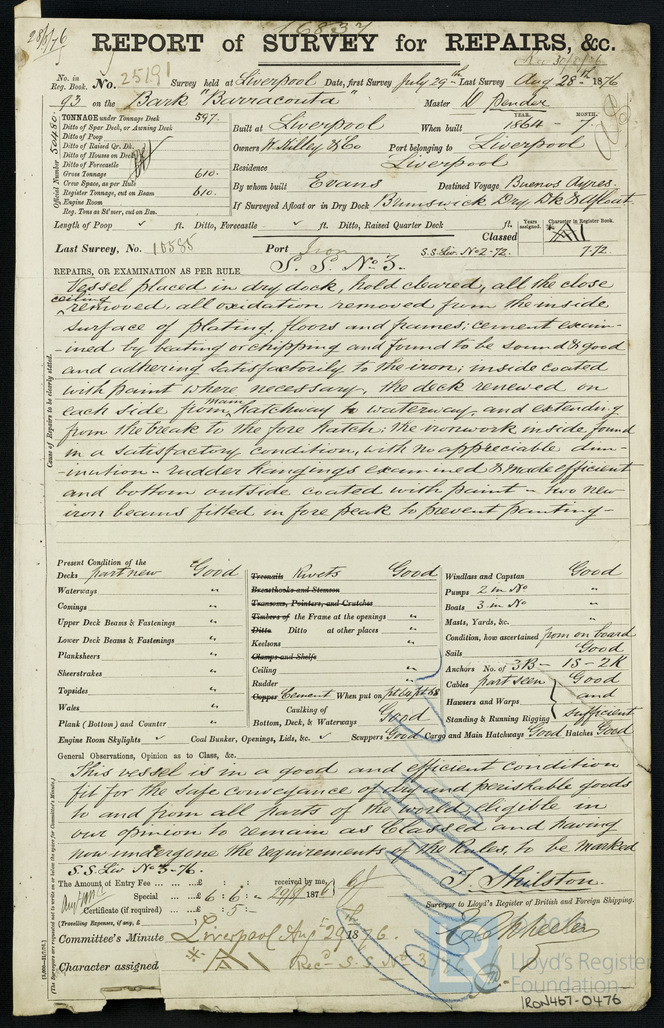 28/8/76
16837
REPORT of SURVEY for REPAIRS, &c.
No. in Reg. Book. No. 25191 Survey held at Liverpool Date, first Survey July 29th Last Survey Aug 28th 1876
93 on the Bark "Barracouta" Master W Pender
TONNAGE under Tonnage Deck 597.
Ditto of Spar Deck, or Awning Deck
Ditto of Poop
Ditto of Raised Qr. Dk.
Ditto of Houses on Deck
Ditto of Forecastle
Gross Tonnage 610.
Crew Space, as per Rule
Register Tonnage, cut on Beam 610.
Engine Room
Reg. Tons as St'mer, cut on Bm.
Official Number
YEAR. MONTH.
Built at Liverpool When built 1864 - 7
Owners W Killey & Co Port belonging to Liverpool
Residence Liverpool
By whom built Evans Destined Voyage Buenos Ayres
If Surveyed Afloat or in Dry Dock Brunswick Dry Dk & Afloat
Length of Poop ft. Ditto, Forecastle ft. Ditto, Raised Quarter Deck ft.
Years assigned. Character in Register Book.
Classed A1
Last Survey, No. 10585 Port Iron S.S. Liv. No 2-72. 7-72
REPAIRS, OR EXAMINATION AS PER RULE S. S. No 3.
Vessel placed in dry dock, hold cleared, all the close
ceiling removed, all oxidation removed from the inside
surface of plating, floors and frames; cement exam-
-ined by beating or chipping and found to be sound & good
and adhering satisfactorily to the iron; inside coated
with paint where necessary, the deck renewed on
each side from main hatchway to waterway, and extending
from the break to the fore hatch; the ironwork inside found
in a satisfactory condition, with no appreciable dim-
-inution - rudder hangings examined & made efficient
and bottom outside coated with paint - two new
iron beams fitted in fore peak to prevent panting -
Cause of Repairs to be clearly stated.
Present Condition of the
Decks part new Good
Waterways "
Comings "
Upper Deck Beams & Fastenings "
Lower Deck Beams & Fastenings "
Planksheers "
Sheerstrakes "
Topsides "
Wales "
Plank (Bottom) and Counter "
Treenails Rivets Good
Breasthooks and Stemson
Transoms, Pointers, and Crutches
Timbers of the Frame at the openings "
Ditto Ditto at other places "
Keelsons "
Clamps and Shelfs
Ceiling "
Rudder "
Copper Cement When put on pt 64, pt 68
Caulking of
Bottom, Deck, & Waterways Good
Windlass and Capstan Good
Pumps 2 in No "
Boats 3 in No "
Masts, Yards, &c. "
Condition, how ascertained from on board
Sails Good
Anchors No. of 3B - 1S - 2K
Cables part seen Good
Hawsers and Warps and
Standing & Running Rigging sufficient
Engine Room Skylights Coal Bunker, Openings, Lids, &c. Scuppers Good Cargo and Main Hatchways Good Hatches Good
General Observations, Opinion as to Class, &c.
This vessel is in a good and efficient condition
fit for the safe conveyance of dry and perishable goods
to and from all parts of the world, eligible in
our opinion to remain as Classed and having
now undergone the requirements of the Rules, to be marked
S. S. Liv No 3-76.
The Amount of Entry Fee ... £ : : received by me,
Special ... £ 6 : 6 : 1876
Certificate (if required) ... : 5 :
(Travelling Expenses, if any, £
Surveyor to Lloyd's Register of British and Foreign Shipping.
Committee's Minute Liverpool Aug 29th 1876.
Character assigned A1 Recd S. S. No 3/76
Lloyd's Register
Foundation
IRON467-0476